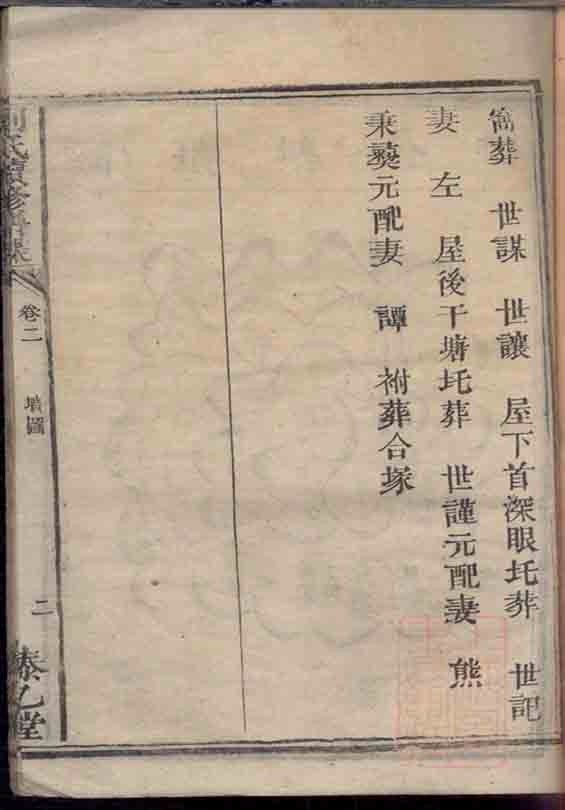 嵩葬 世謀 世讓 屋下首深眼圫葬 世記
妻 左 屋後干塘圫葬 世謹元配妻 熊
秉彝元配妻 譚 祔葬合塚
氏 修譜
卷二 墳圖
二
泰乙堂